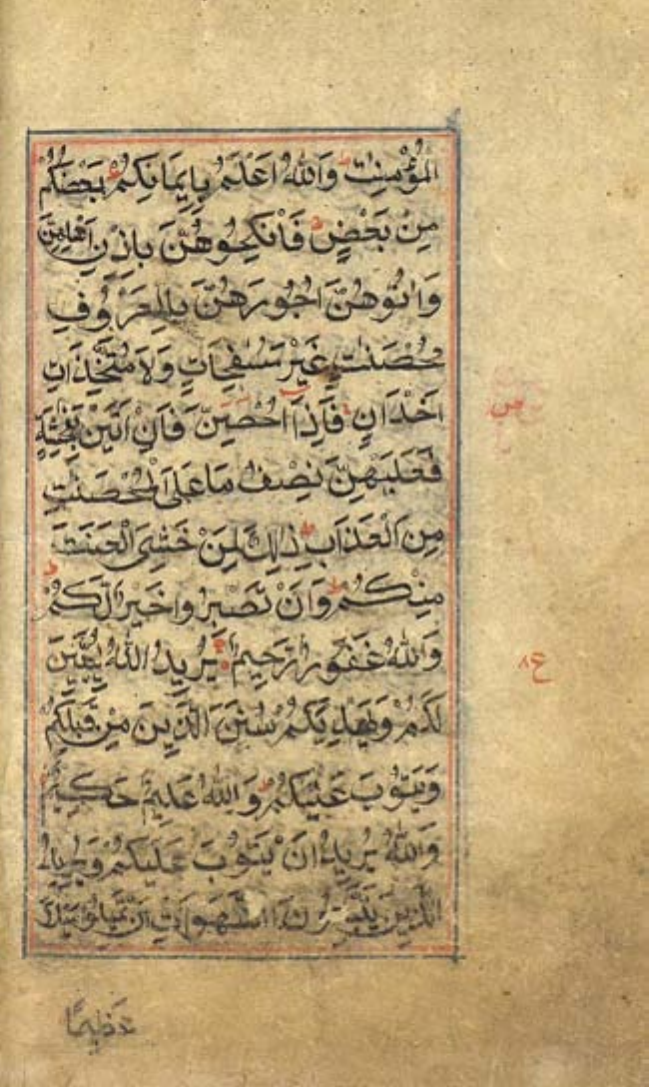 الْمُؤْمِنٰتِ وَاللّٰهُ اَعْلَمُ بِاِيمَانِكُمْ بَعْضُكُمْ
مِنْ بَعْضٍ فَانْكِحُوْهُنَّ بِاِذْنِ اَهْلِهِنَّ
وَاٰتُوْهُنَّ اُجُوْرَهُنَّ بِالْمَعْرُوْفِ
مُحْصَنٰتٍ غَيْرَ مُسٰفِحَاتٍ وَلَا مُتَّخِذَاتِ
اَخْدَانٍ فَاِذَا اُحْصِنَّ فَاِنْ اَتَيْنَ بِفَاحِشَةٍ
ص
فَعَلَيْهِنَّ نِصْفُ مَا عَلَى الْمُحْصَنٰتِ
مِنَ الْعَذَابِ ذٰلِكَ لِمَنْ خَشِىَ الْعَنَتَ
مِنْكُمْ وَاَنْ تَصْبِرُوا خَيْرٌ لَّكُمْ
وَاللّٰهُ غَفُوْرٌ رَّحِيْمٌ يُرِيْدُ اللّٰهُ لِيُبَيِّنَ
لَكُمْ وَيَهْدِيَكُمْ سُنَنَ الَّذِيْنَ مِنْ قَبْلِكُمْ
وَيَتُوْبَ عَلَيْكُمْ وَاللّٰهُ عَلِيْمٌ حَكِيْمٌ
وَاللّٰهُ يُرِيْدُ اَنْ يَتُوْبَ عَلَيْكُمْ وَيُرِيْدُ
الَّذِيْنَ يَتَّبِعُوْنَ الشَّهَوَاتِ اَنْ تَمِيْلُوْا مَيْلًا
عَظِيْمًا